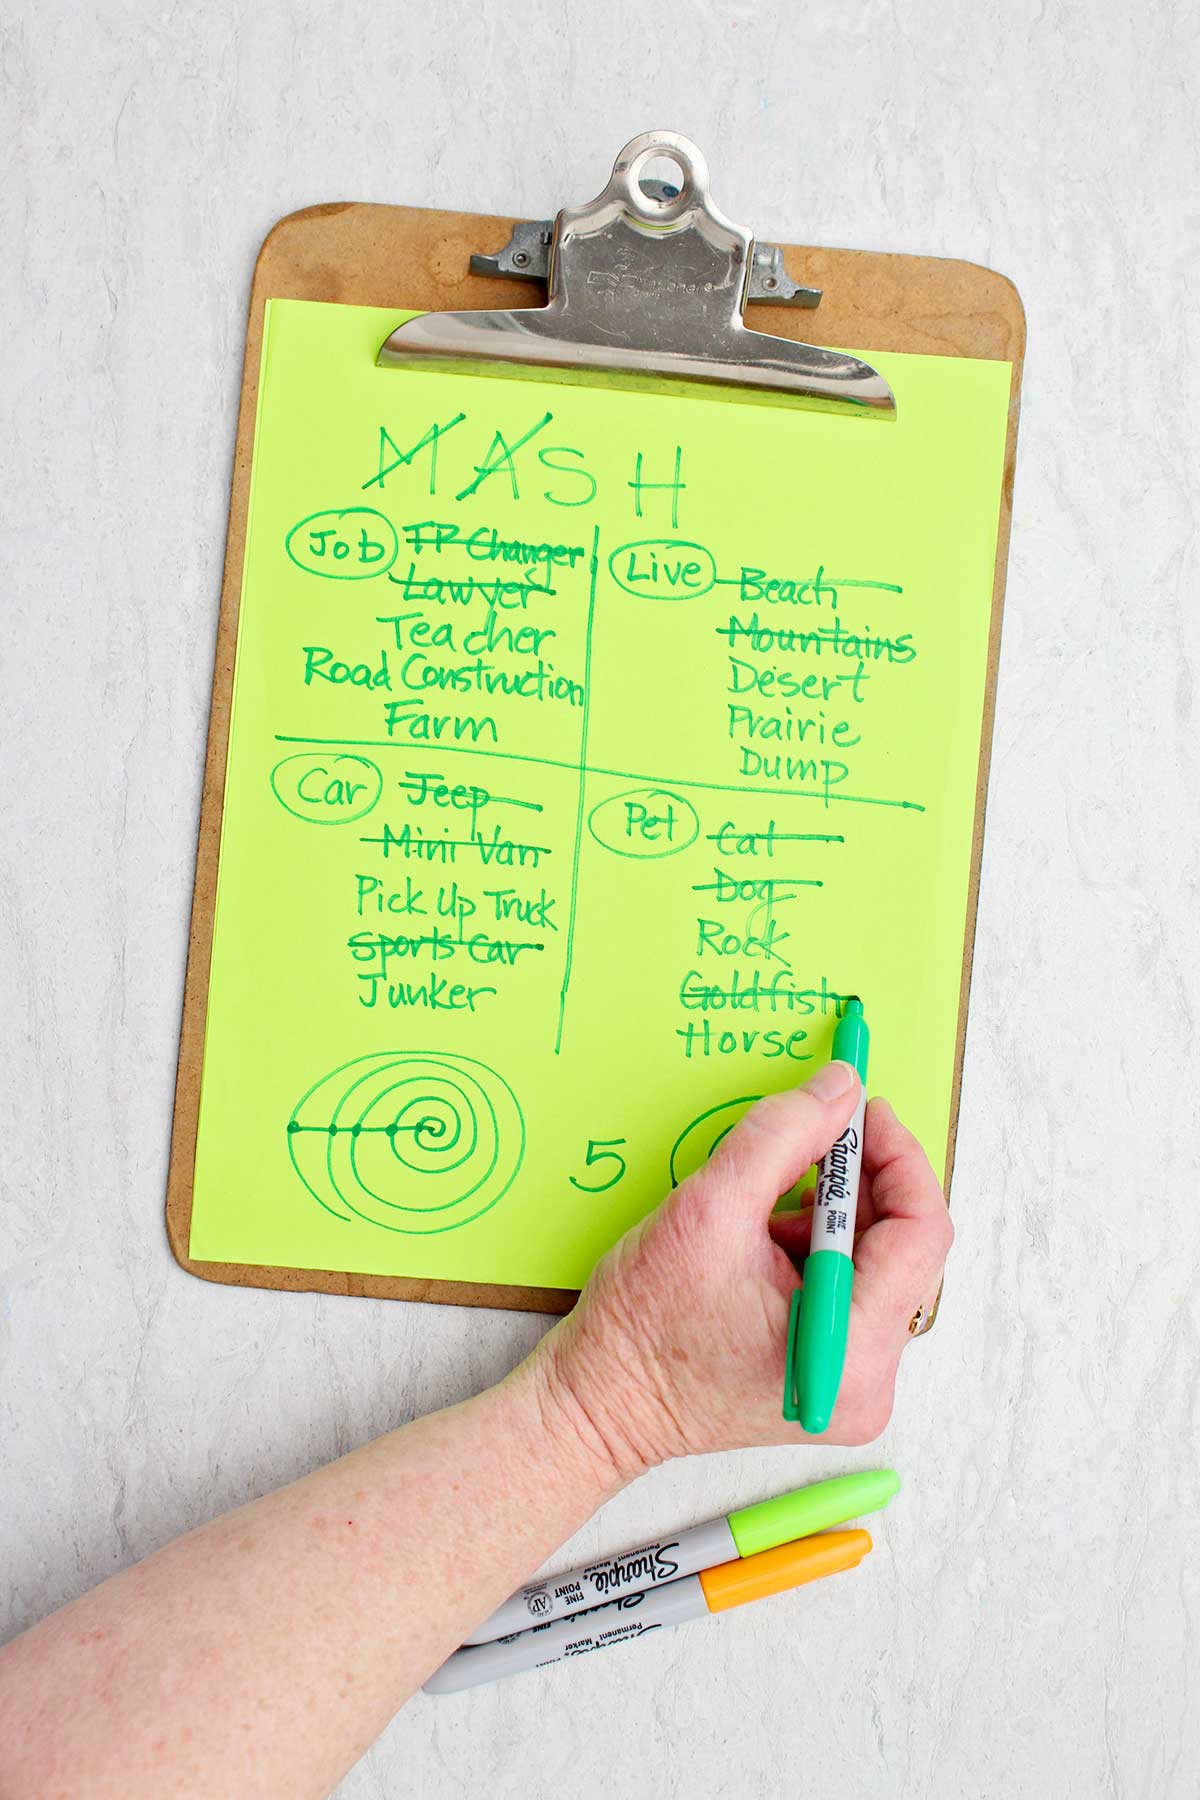 MASH
Job TP Changer
Lawyer
Teacher
Road Construction
Farm
Live Beach
Mountains
Desert
Prairie
Dump
Car Jeep
Mini Van
Pick Up Truck
Sports Car
Junker
Pet Cat
Dog
Rock
Goldfish
Horse
5
Sharpie
FINE
POINT
Sharpie
Permanent Marker
FINE
POINT
AP
Permanent Marker